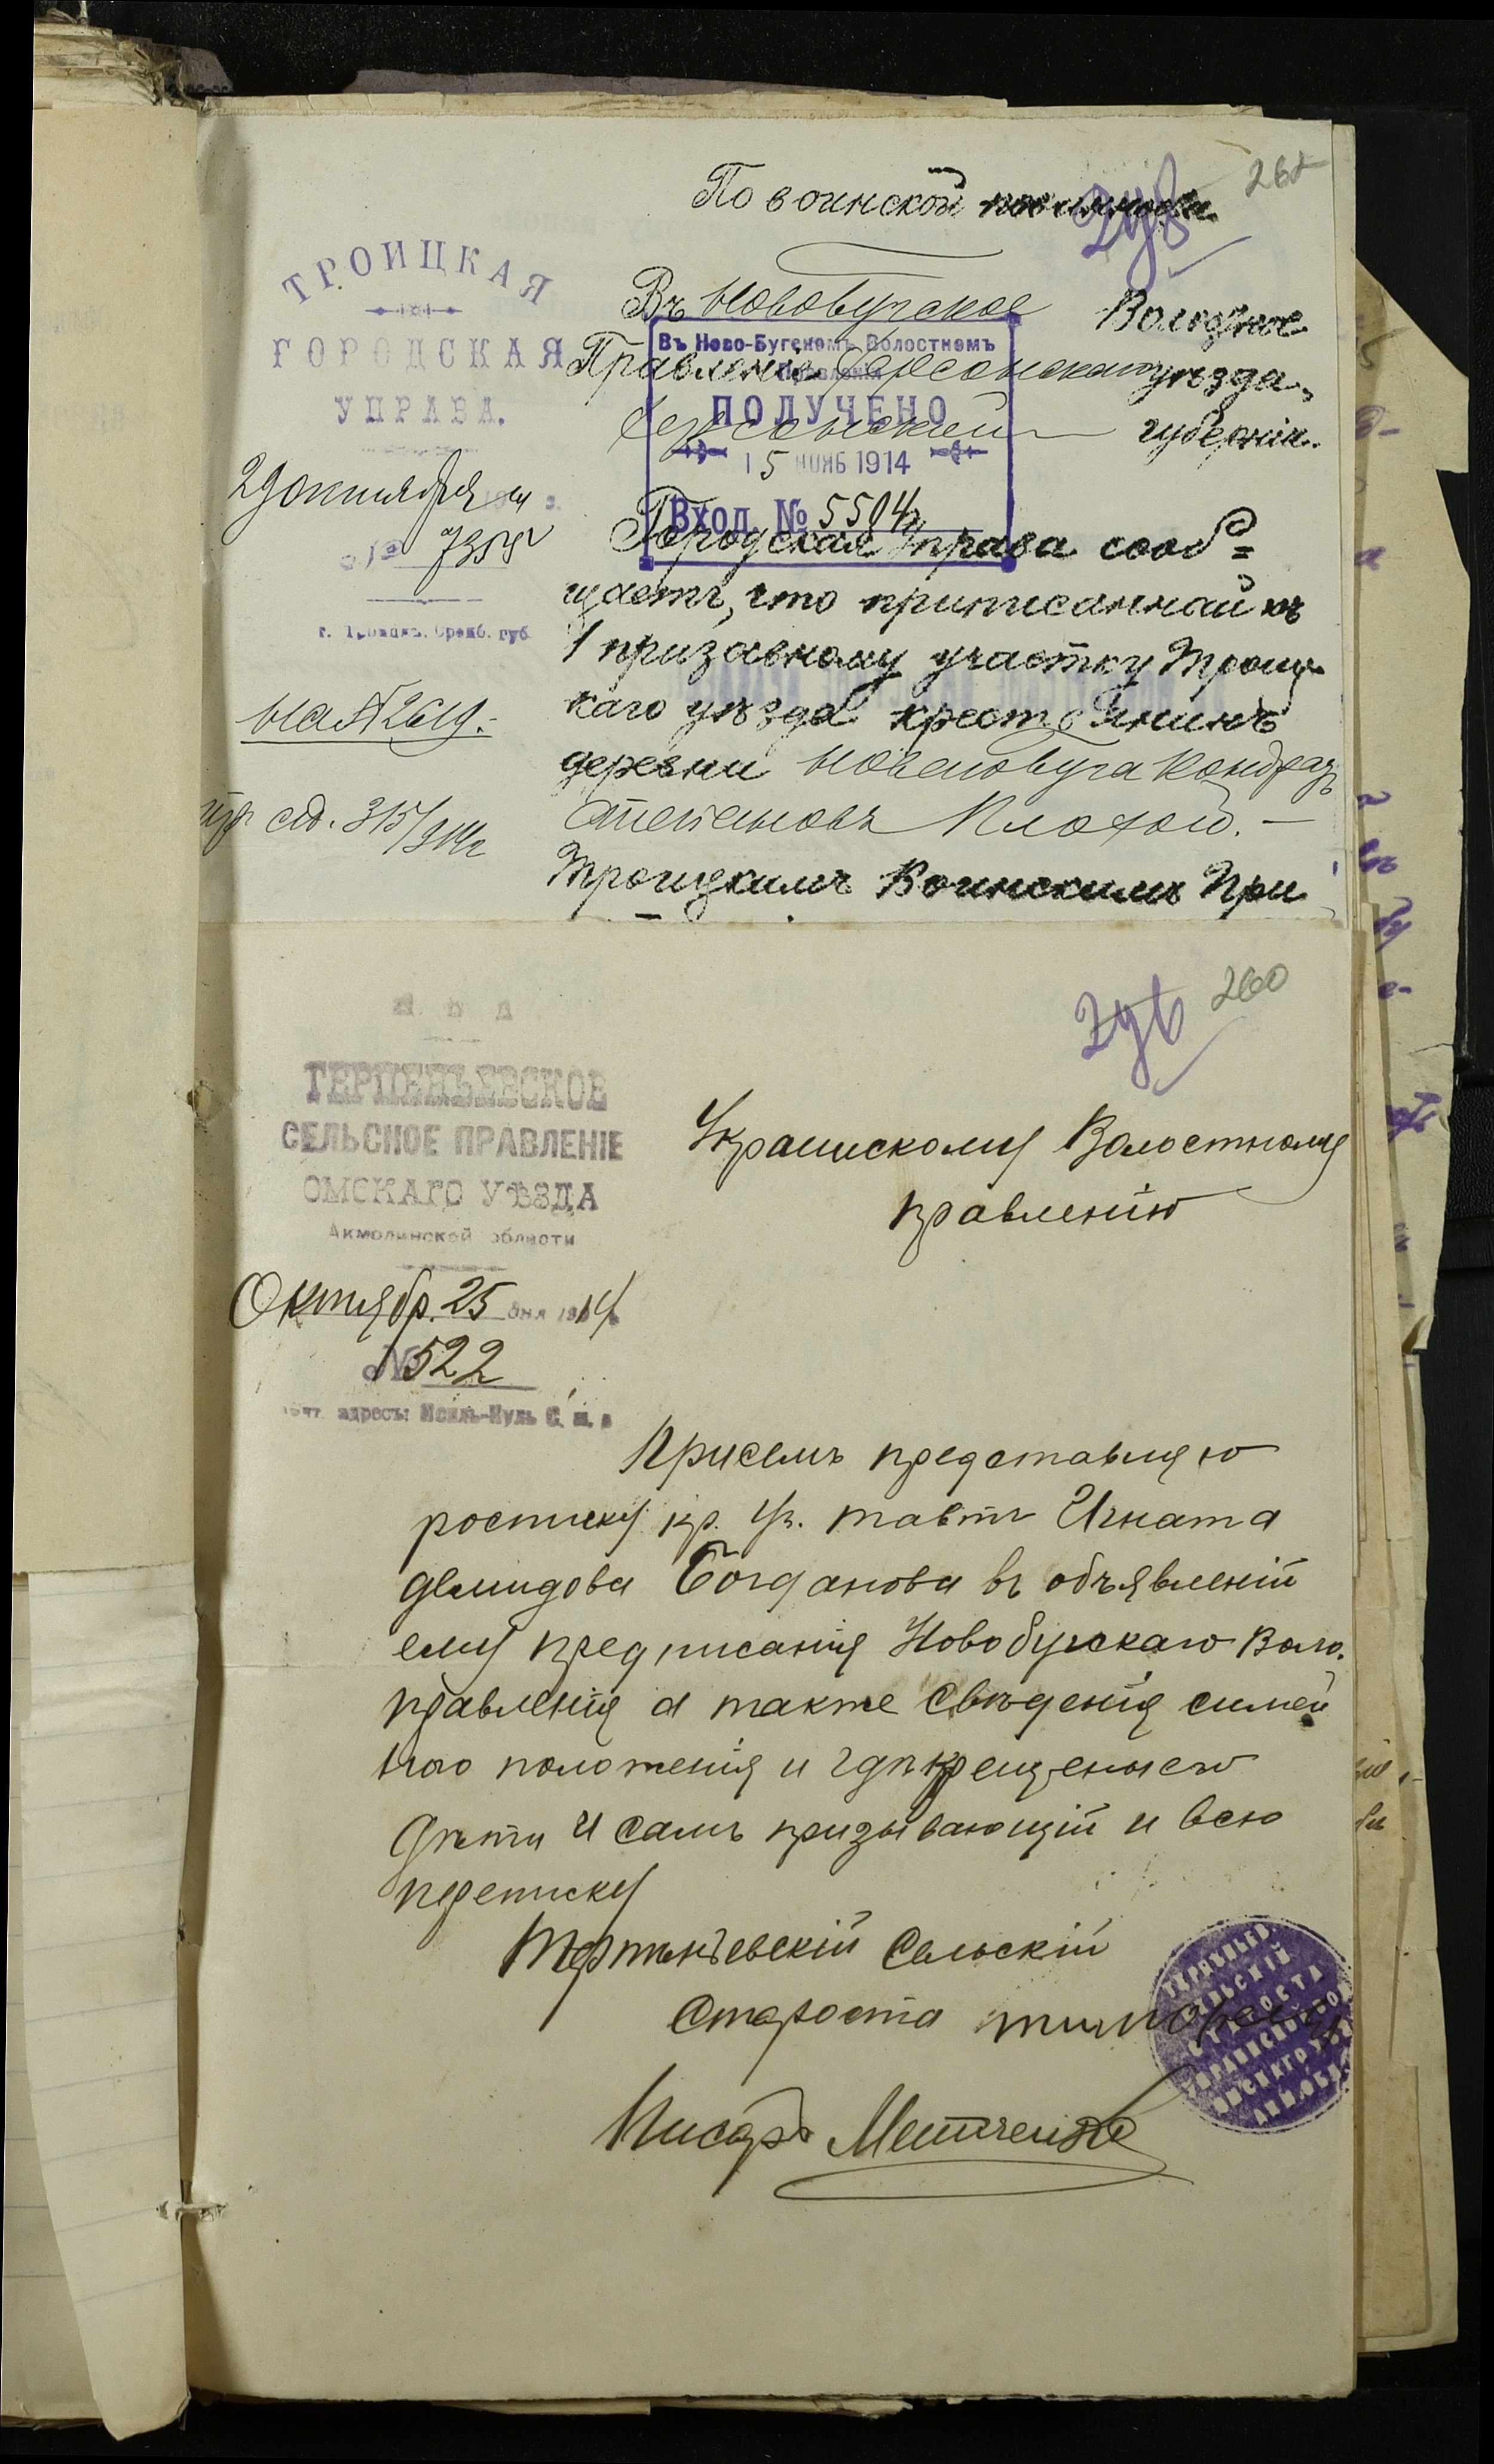 261
По воинской повинности
298
ТРОИЦКАЯ
ГОРОДСКАЯ
УПРАВА.
29 октября 14
№ 7358
г. Троицкъ, Оренб. губ.
на № 2619.
314/914
Въ Новобугское Волостное
Правленіе Херсонскаго уѣзда,
Херсонской губерніи.
Въ Ново-Бугскомъ Волостномъ
Правленіи
ПОЛУЧЕНО
15 НОЯБ 1914
Вход. № 5504
Городская Управа сооб=
щаетъ, что приписанный къ
1 призывному участку Троиц-
каго уѣзда крестьянинъ
деревни Новаго Буга Кондратъ
Степановъ Плохой. —
Троицкимъ Воинскимъ При
М. В. Д.
ТЕРПЕНЬЕВСКОЕ
СЕЛЬСКОЕ ПРАВЛЕНІЕ
ОМСКАГО УѢЗДА
Акмолинской области
Октябр. 25 дня 1914
№ 522
адресъ: Исиль-Куль С. ж. д.
296 260
Украинскому Волостному
правленію
Присемъ представляю
росписку кр. Игната
Демидова Богданова въ объявленій
ему предписанія Новобугскаго Воло.
правленія а также свѣденія симей
ного положенія и гдѣ крещенные
дѣти и самъ призывающій и всю
переписку
Терпѣньевскій Сельскій
Староста
Писарь